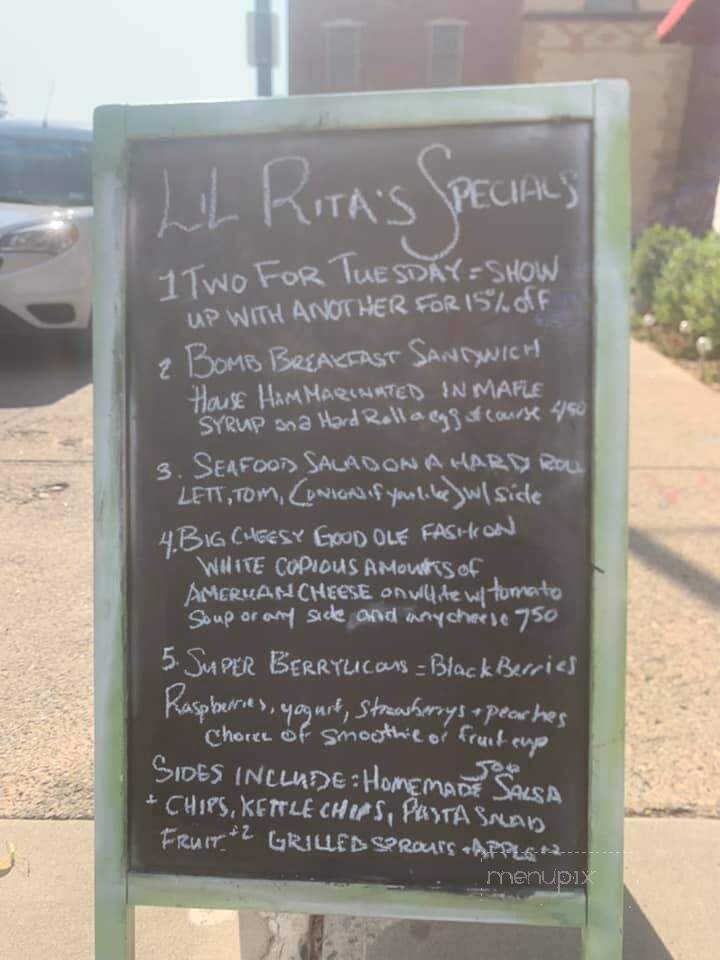 LIL RITA'S SPECIALS
1 TWO FOR TUESDAY = SHOW
UP WITH ANOTHER FOR 15% off
2 BOMB BREAKFAST SANDWICH
House HAM MARINATED IN MAPLE
SYRUP on a Hard Roll egg of course 4/50
3. SEAFOOD SALAD ON A HARD ROLL
LETT, TOM, (ONION if you like) w/ side
4. BIG CHEESY GOOD OLE FASHION
WHITE COPIOUS AMOUNTS of
AMERICAN CHEESE on white w/ tomato
Soup or any side and any cheese 750
5. SUPER BERRYLICOUS = Black Berries
Raspberries, yogurt, Strawberrys + peaches
Choice of Smoothie or fruit cup
500
SIDES INCLUDE: HOMEMADE SALSA
+ CHIPS, KETTLE CHIPS, PASTA SALAD
FRUIT +2 GRILLED SPROUTS + APPLE +2
menupix